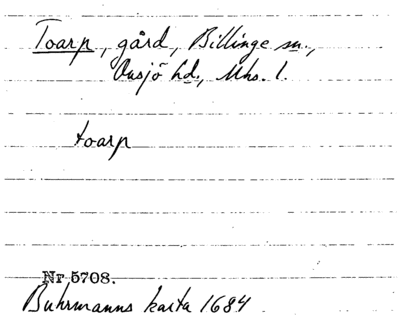 Toarp, gård, Billinge sn.,
Onsjö hd., Mhs. l.
toarp
Nr 5708.
Buhrmanns karta 1684.